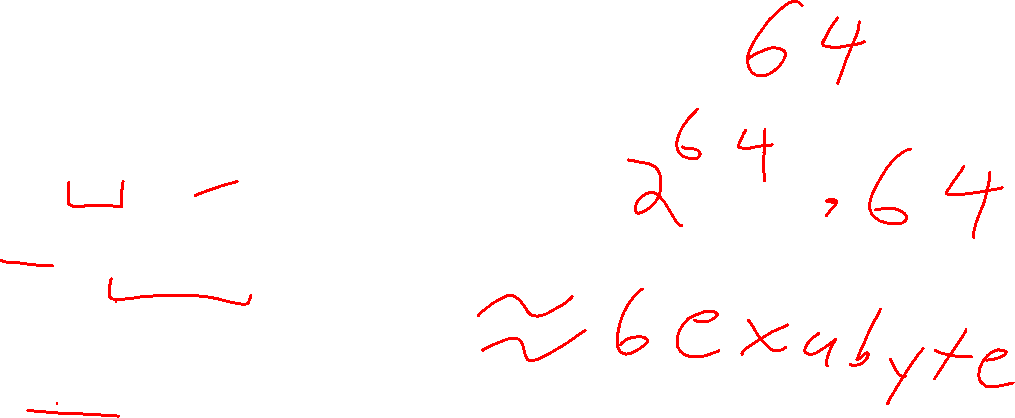 64
2^64 . 64
≈ 6 exabyte